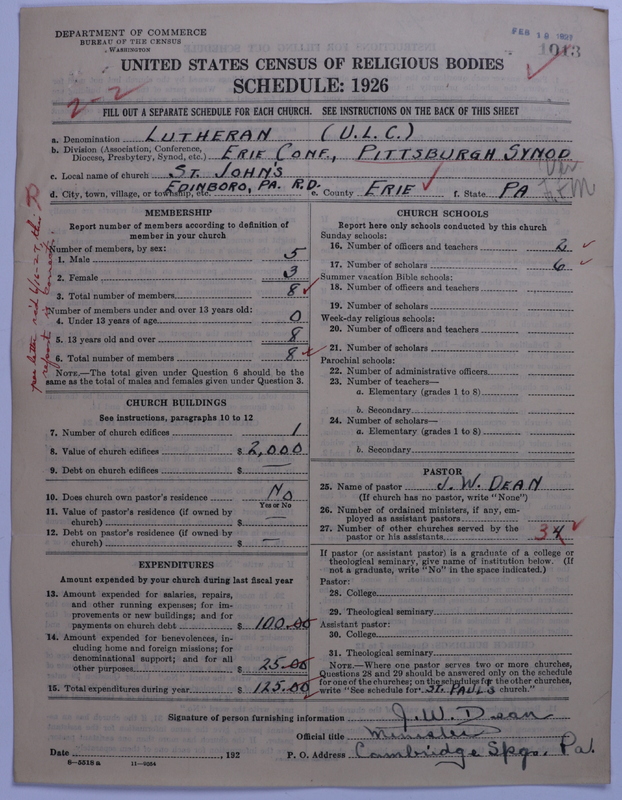 DEPARTMENT OF COMMERCE
BUREAU OF THE CENSUS
WASHINGTON
FEB 18 1927
1013
UNITED STATES CENSUS OF RELIGIOUS BODIES
SCHEDULE: 1926
2-2
FILL OUT A SEPARATE SCHEDULE FOR EACH CHURCH. SEE INSTRUCTIONS ON THE BACK OF THIS SHEET
a. Denomination LUTHERAN (U.L.C.)
b. Division (Association, Conference, Diocese, Presbytery, Synod, etc.) ERIE CONF., PITTSBURGH SYNOD
c. Local name of church ST. JOHN'S
d. City, town, village, or township, etc. EDINBORO, PA. R.D. e. County ERIE f. State PA
MEMBERSHIP
Report number of members according to definition of
member in your church
Number of members, by sex:
1. Male 5
2. Female 3
3. Total number of members 8
Number of members under and over 13 years old:
4. Under 13 years of age 0
5. 13 years old and over 8
6. Total number of members 8
NOTE.—The total given under Question 6 should be the
same as the total of males and females given under Question 3.
CHURCH BUILDINGS
See instructions, paragraphs 10 to 12
7. Number of church edifices 1
8. Value of church edifices $ 2,000
9. Debt on church edifices $ —
10. Does church own pastor's residence No
Yes or No
11. Value of pastor's residence (if owned by
church) $ —
12. Debt on pastor's residence (if owned by
church) $ —
EXPENDITURES
Amount expended by your church during last fiscal year
13. Amount expended for salaries, repairs,
and other running expenses; for im-
provements or new buildings; and for
payments on church debt $ 100.00
14. Amount expended for benevolences, in-
cluding home and foreign missions; for
denominational support; and for all
other purposes $ 25.00
15. Total expenditures during year $ 125.00
CHURCH SCHOOLS
Report here only schools conducted by this church
Sunday schools:
16. Number of officers and teachers 2
17. Number of scholars 6
Summer vacation Bible schools:
18. Number of officers and teachers
19. Number of scholars
Week-day religious schools:
20. Number of officers and teachers
21. Number of scholars
Parochial schools:
22. Number of administrative officers
23. Number of teachers—
a. Elementary (grades 1 to 8)
b. Secondary
24. Number of scholars—
a. Elementary (grades 1 to 8)
b. Secondary
PASTOR
25. Name of pastor J. W. DEAN
(If church has no pastor, write "None")
26. Number of ordained ministers, if any, em-
ployed as assistant pastors
27. Number of other churches served by the
pastor or his assistants 3 4
If pastor (or assistant pastor) is a graduate of a college or
theological seminary, give name of institution below. (If
not a graduate, write "No" in the space indicated.)
Pastor:
28. College
29. Theological seminary
Assistant pastor:
30. College
31. Theological seminary
NOTE.—Where one pastor serves two or more churches,
Questions 28 and 29 should be answered only on the schedule
for one of the churches; on the schedules for the other churches,
write "See schedule for ST. PAUL'S church."
Signature of person furnishing information J. W. Dean
Official title Minister
Date , 192 P. O. Address Cambridge Spgs, Pa.
8—5518 a 11—9054